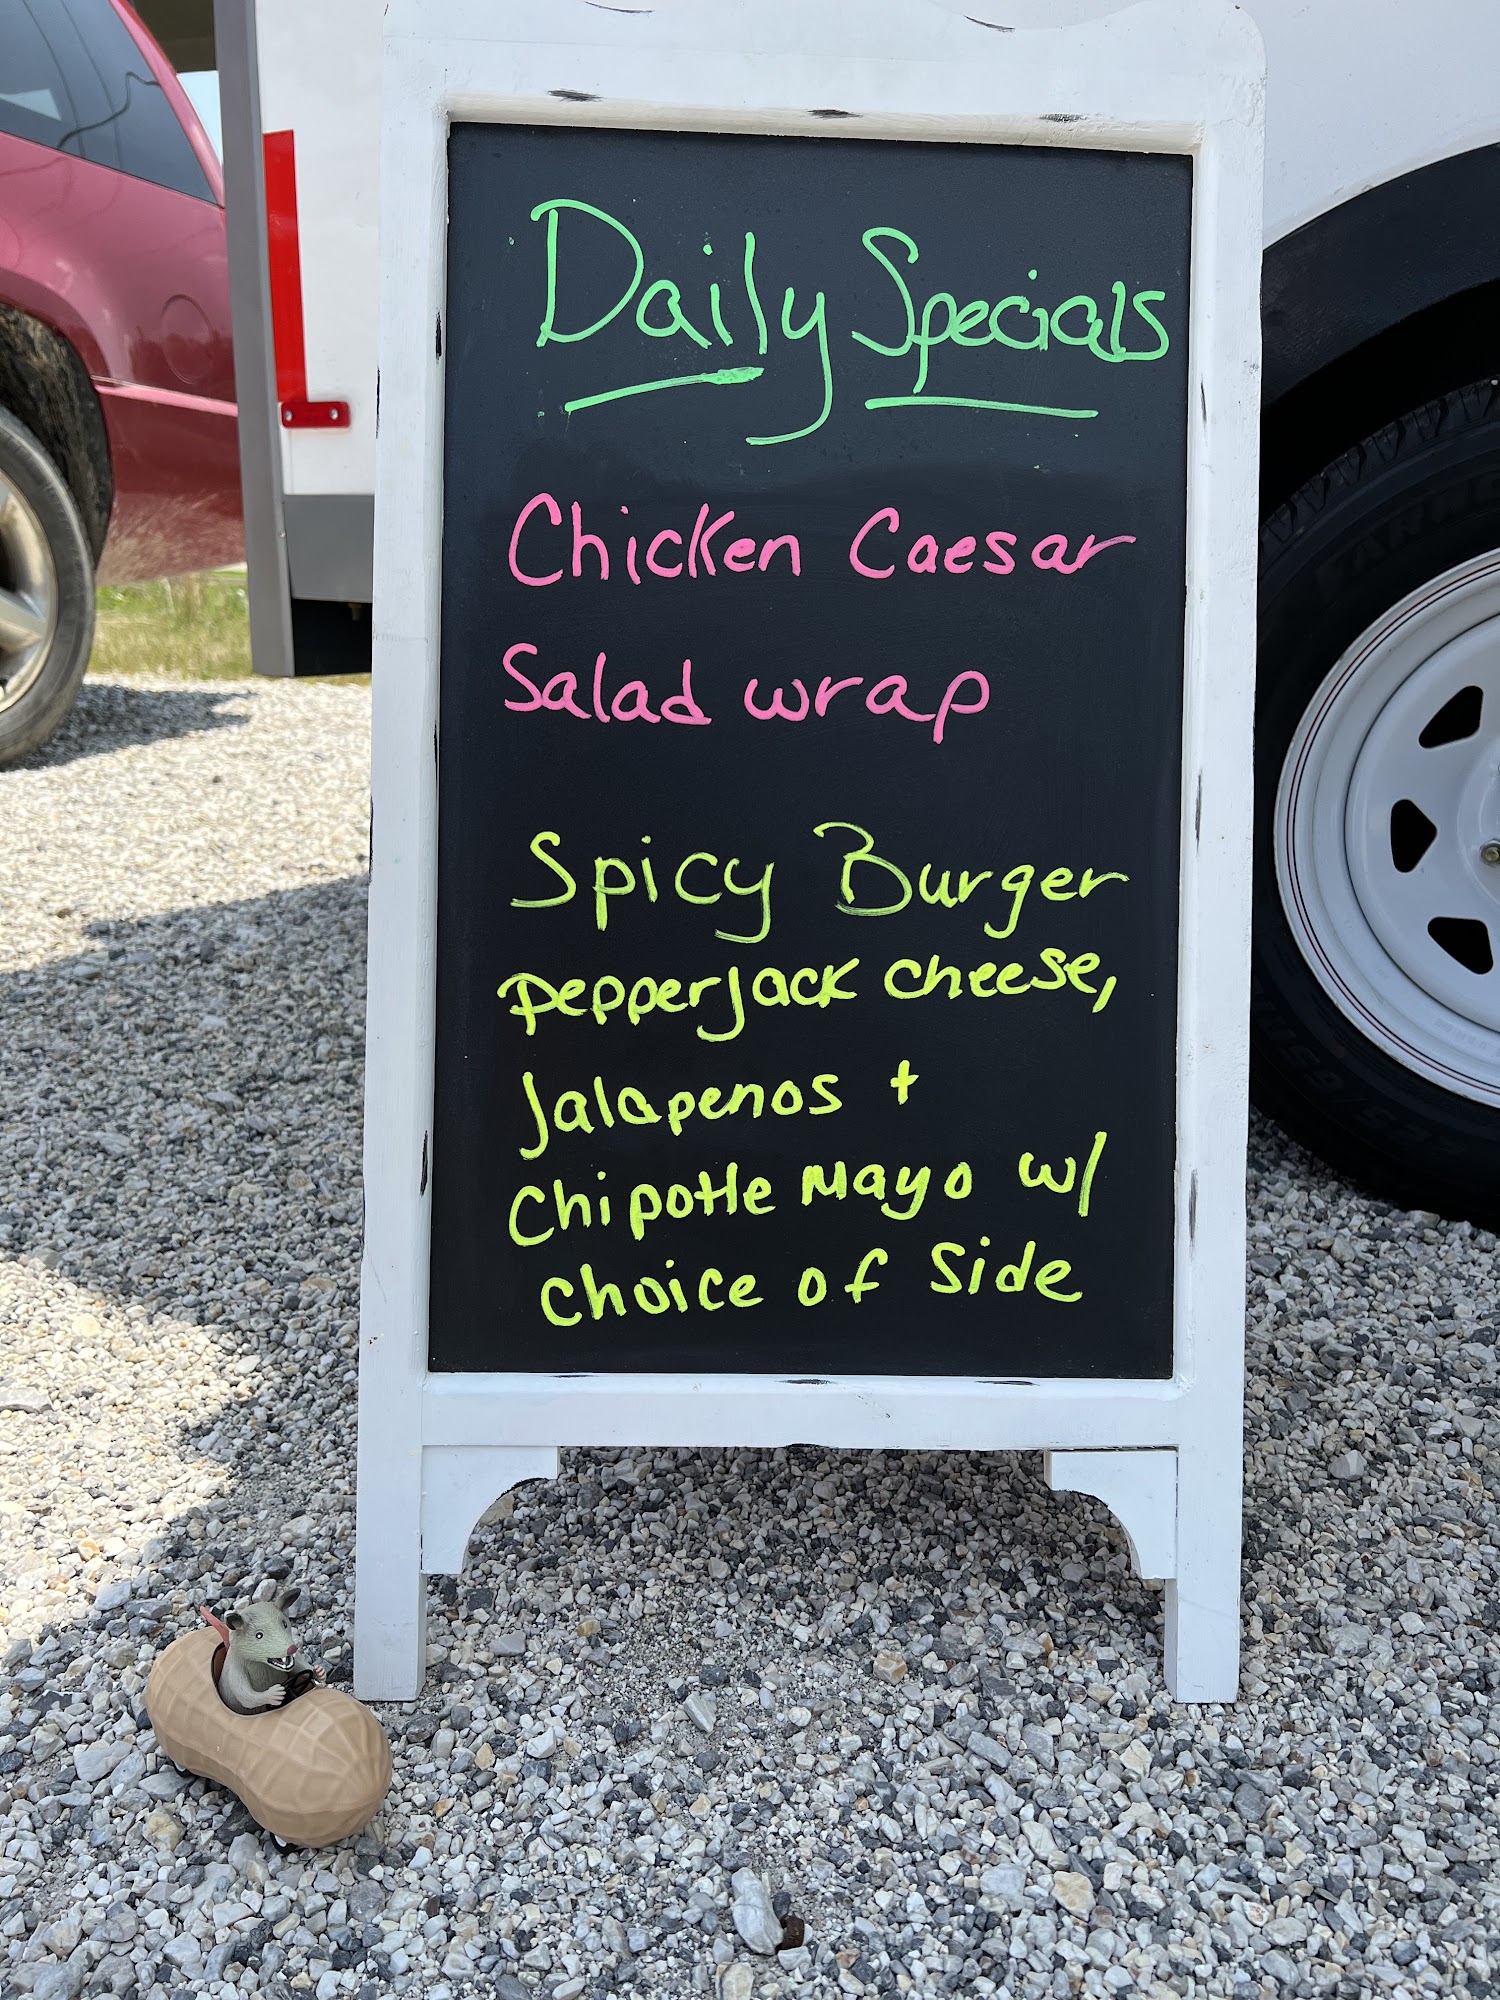 Daily Specials
Chicken Caesar
Salad wrap
Spicy Burger
pepperjack cheese,
Jalapenos +
Chipotle Mayo w/
choice of Side